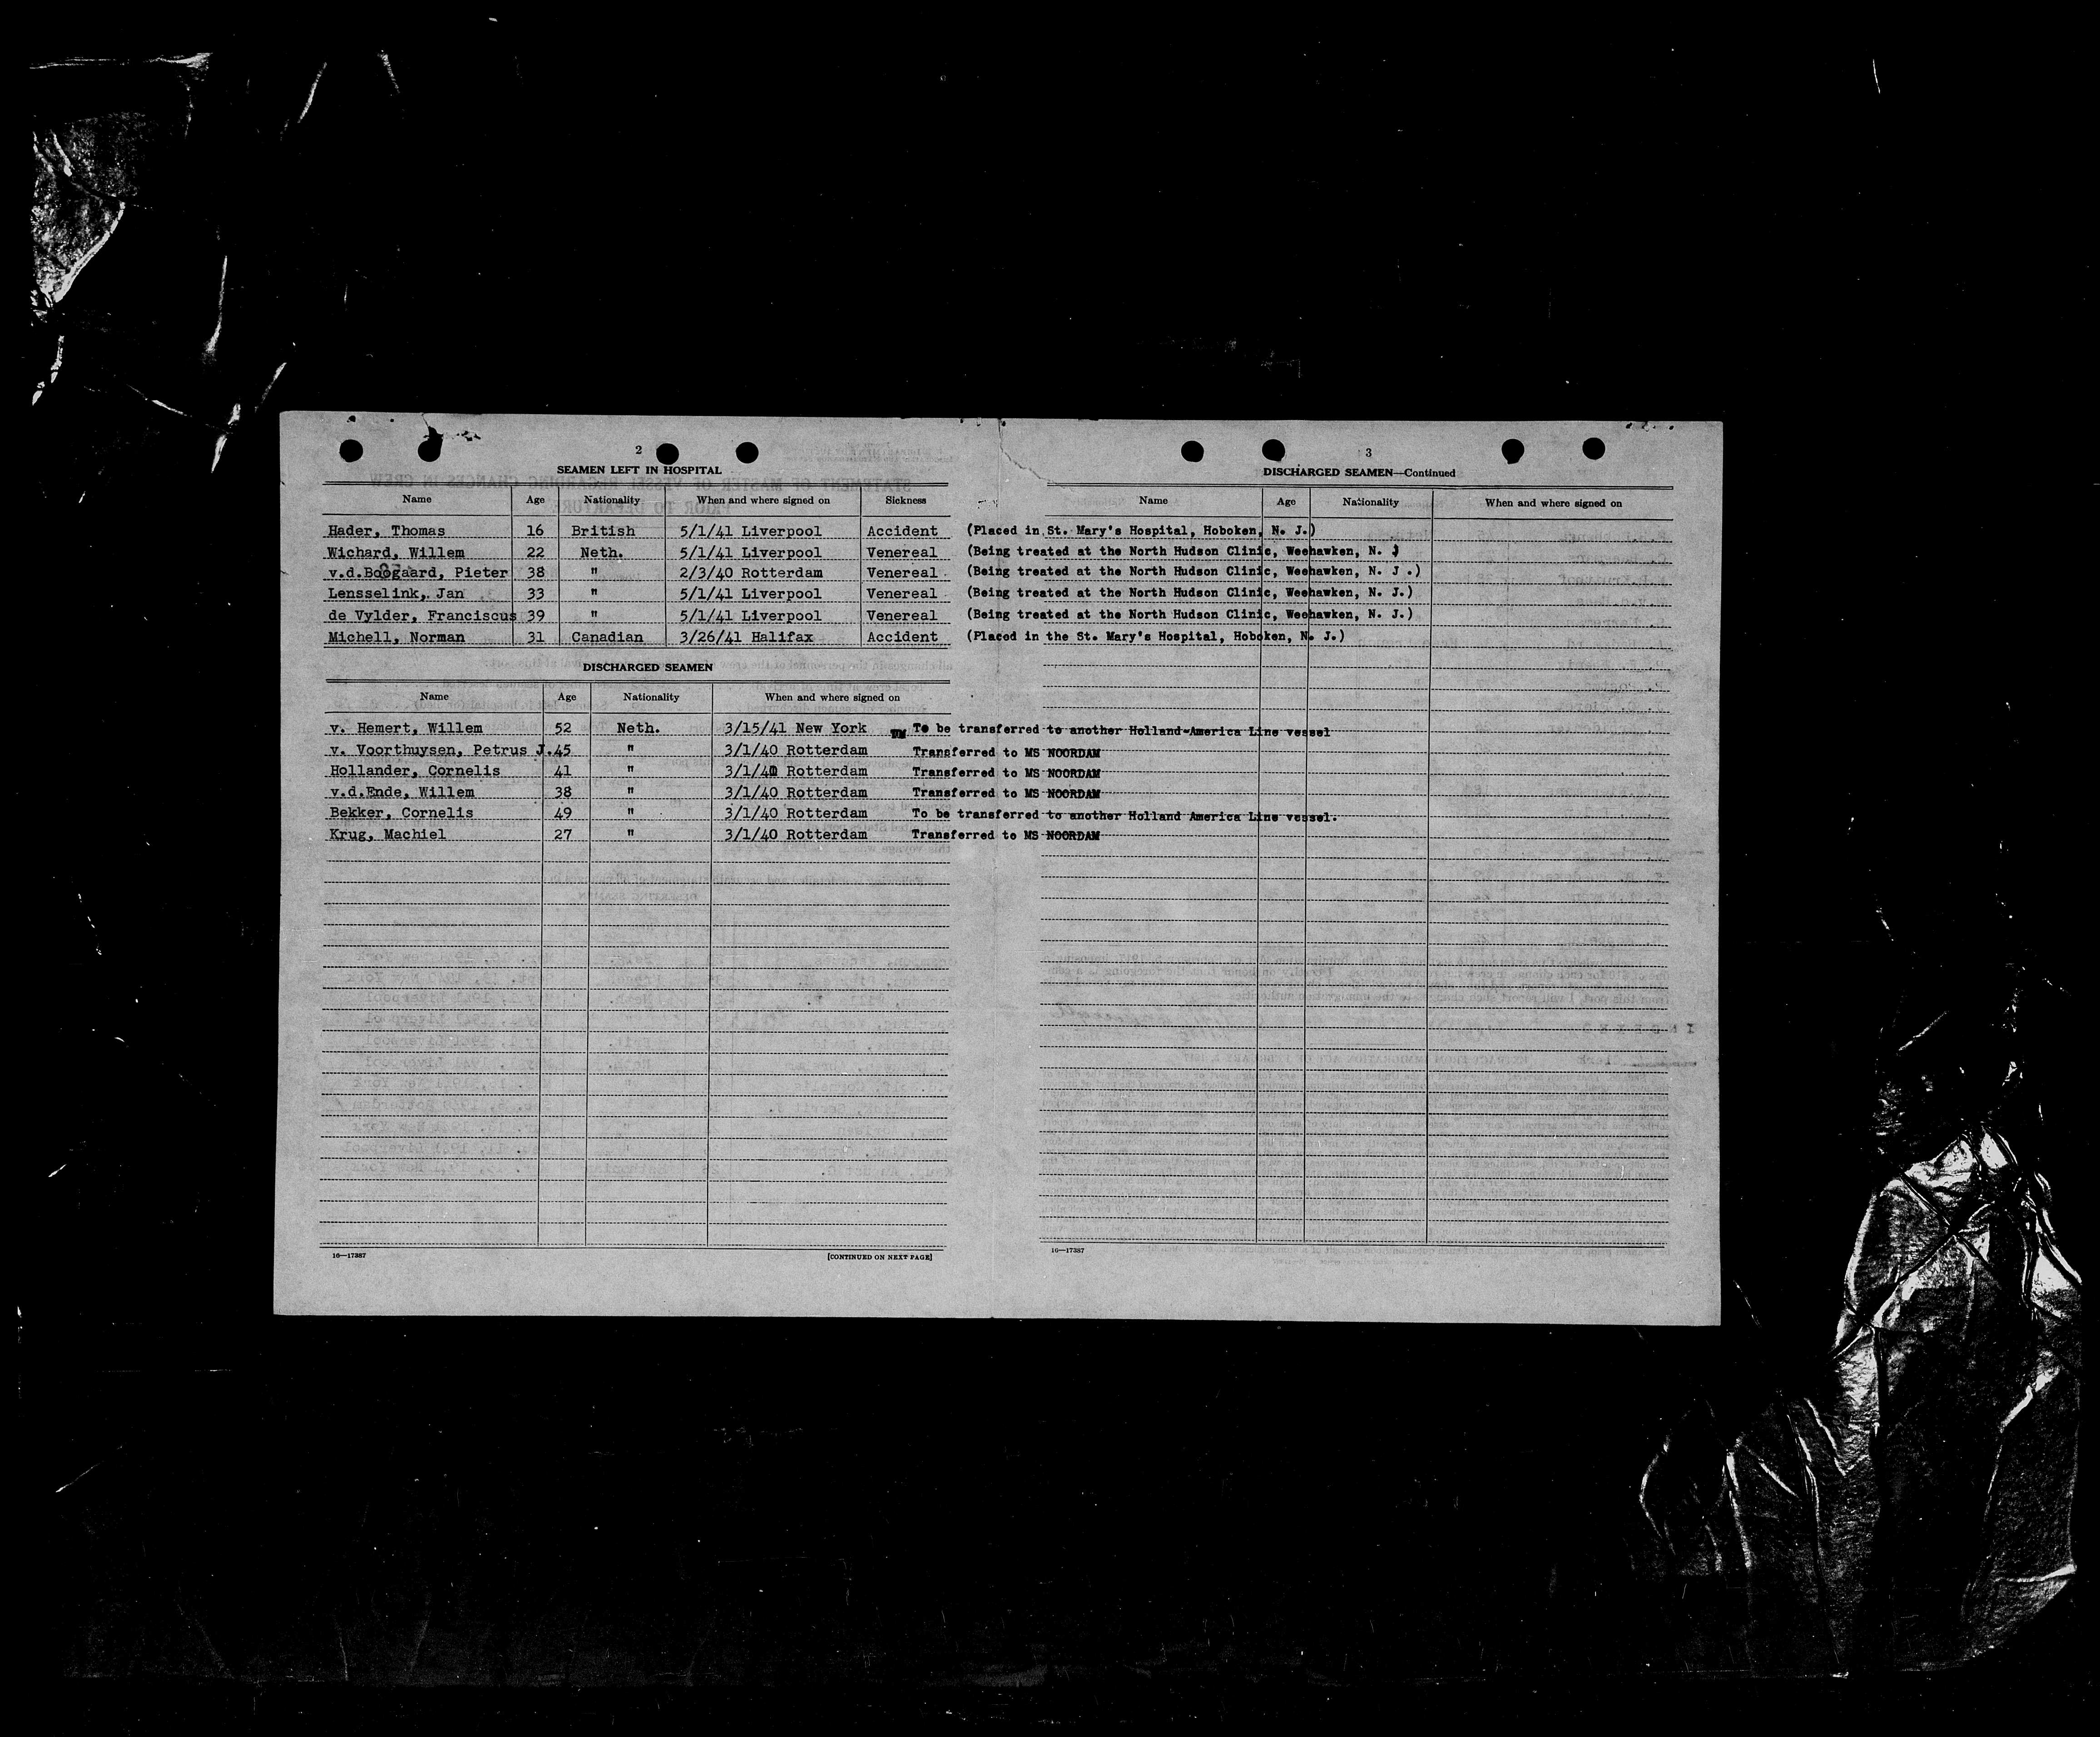 2
SEAMEN LEFT IN HOSPITAL
Name Age Nationality When and where signed on Sickness
Hader, Thomas 16 British 5/1/41 Liverpool Accident (Placed in St. Mary's Hospital, Hoboken, N. J.)
Wichard, Willem 22 Neth. 5/1/41 Liverpool Venereal (Being treated at the North Hudson Clinic, Weehawken, N. J
v.d.Boogaard, Pieter 38 " 2/3/40 Rotterdam Venereal (Being treated at the North Hudson Clinic, Weehawken, N. J .)
Lensselink, Jan 33 " 5/1/41 Liverpool Venereal (Being treated at the North Hudson Clinic, Weehawken, N. J.)
de Vylder, Franciscus 39 " 5/1/41 Liverpool Venereal (Being treated at the North Hudson Clinic, Weehawken, N. J.)
Michell, Norman 31 Canadian 3/26/41 Halifax Accident (Placed in the St. Mary's Hospital, Hoboken, N. J.)
DISCHARGED SEAMEN
Name Age Nationality When and where signed on
v. Hemert, Willem 52 Neth. 3/15/41 New York To be transferred to another Holland-America Line vessel
v. Voorthuysen, Petrus J. 45 " 3/1/40 Rotterdam Transferred to MS NOORDAM
Hollander, Cornelis 41 " 3/1/40 Rotterdam Transferred to MS NOORDAM
v.d.Ende, Willem 38 " 3/1/40 Rotterdam Transferred to MS NOORDAM
Bekker, Cornelis 49 " 3/1/40 Rotterdam To be transferred to another Holland America Line vessel.
Krug, Machiel 27 " 3/1/40 Rotterdam Transferred to MS NOORDAM
16—17387 [CONTINUED ON NEXT PAGE]
3
DISCHARGED SEAMEN—Continued
Name Age Nationality When and where signed on
16—17387